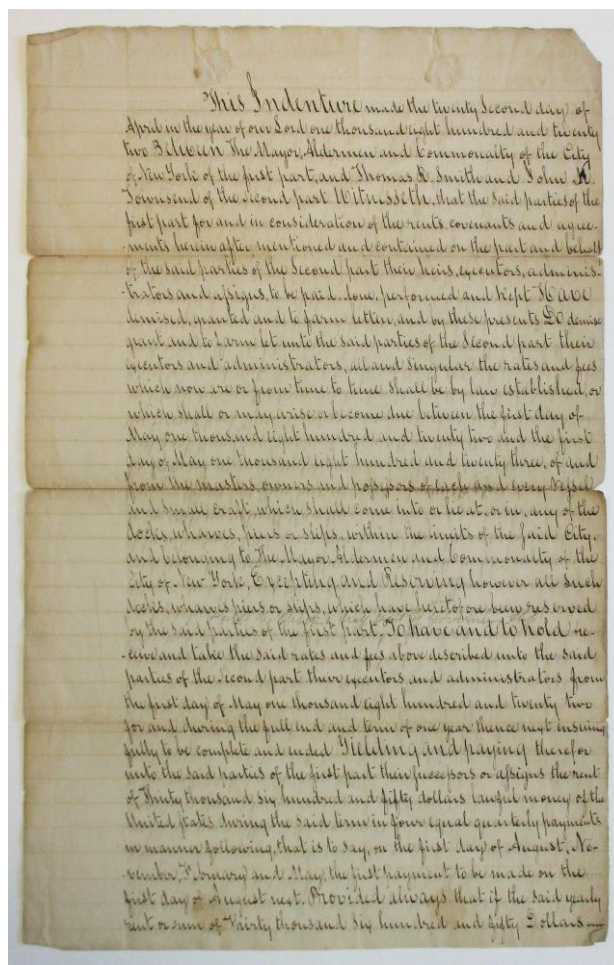 This Indenture made the twenty Second day of
April in the year of our Lord one thousand eight hundred and twenty
two Between The Mayor, Aldermen and Commonalty of the City
of New York of the first part, and Thomas R. Smith and John R.
Townsend of the second part Witnesseth, that the said parties of the
first part for and in consideration of the rents covenants and agree-
-ments herein after mentioned and contained on the part and behalf
of the said parties of the Second part their heirs, executors, adminis-
-trators and assigns, to be paid, done, performed and kept Have
demised, granted and to farm letten, and by these presents Do demise
grant and to Farm let unto the said parties of the Second part their
executors and administrators, all and Singular the rates and fees
which now are or from time to time Shall be by law established, or
which Shall or may arise or become due between the first day of
May one thousand eight hundred and twenty two and the first
day of May one thousand eight hundred and twenty three, of and
from the masters, owners and possessors of each and every Vessel
and Small craft, which shall come into or be at, or in, any of the
docks, wharves, piers or slips, within the limits of the said City,
and belonging to The Mayor, Aldermen and Commonalty of the
City of New York, Excepting and Reserving however all Such
docks, wharves piers or slips, which have heretofore been reserved
by the said parties of the first part, To have and to hold re-
ceive and take the said rates and fees above described unto the said
parties of the second part their executors and administrators from
the first day of May one thousand eight hundred and twenty two
for and during the full end and term of one year thence next ensuing
fully to be complete and ended Yielding and paying therefor
unto the said parties of the first part their successors or assigns the rent
of Thirty thousand six hundred and fifty dollars lawful money of the
United States during the said term in four equal quarterly payments
in manner following, that is to say, on the first day of August, No-
vember, February and May, the first payment to be made on the
first day of August next. Provided always that if the said yearly
rent or sum of Thirty thousand Six hundred and fifty Dollars